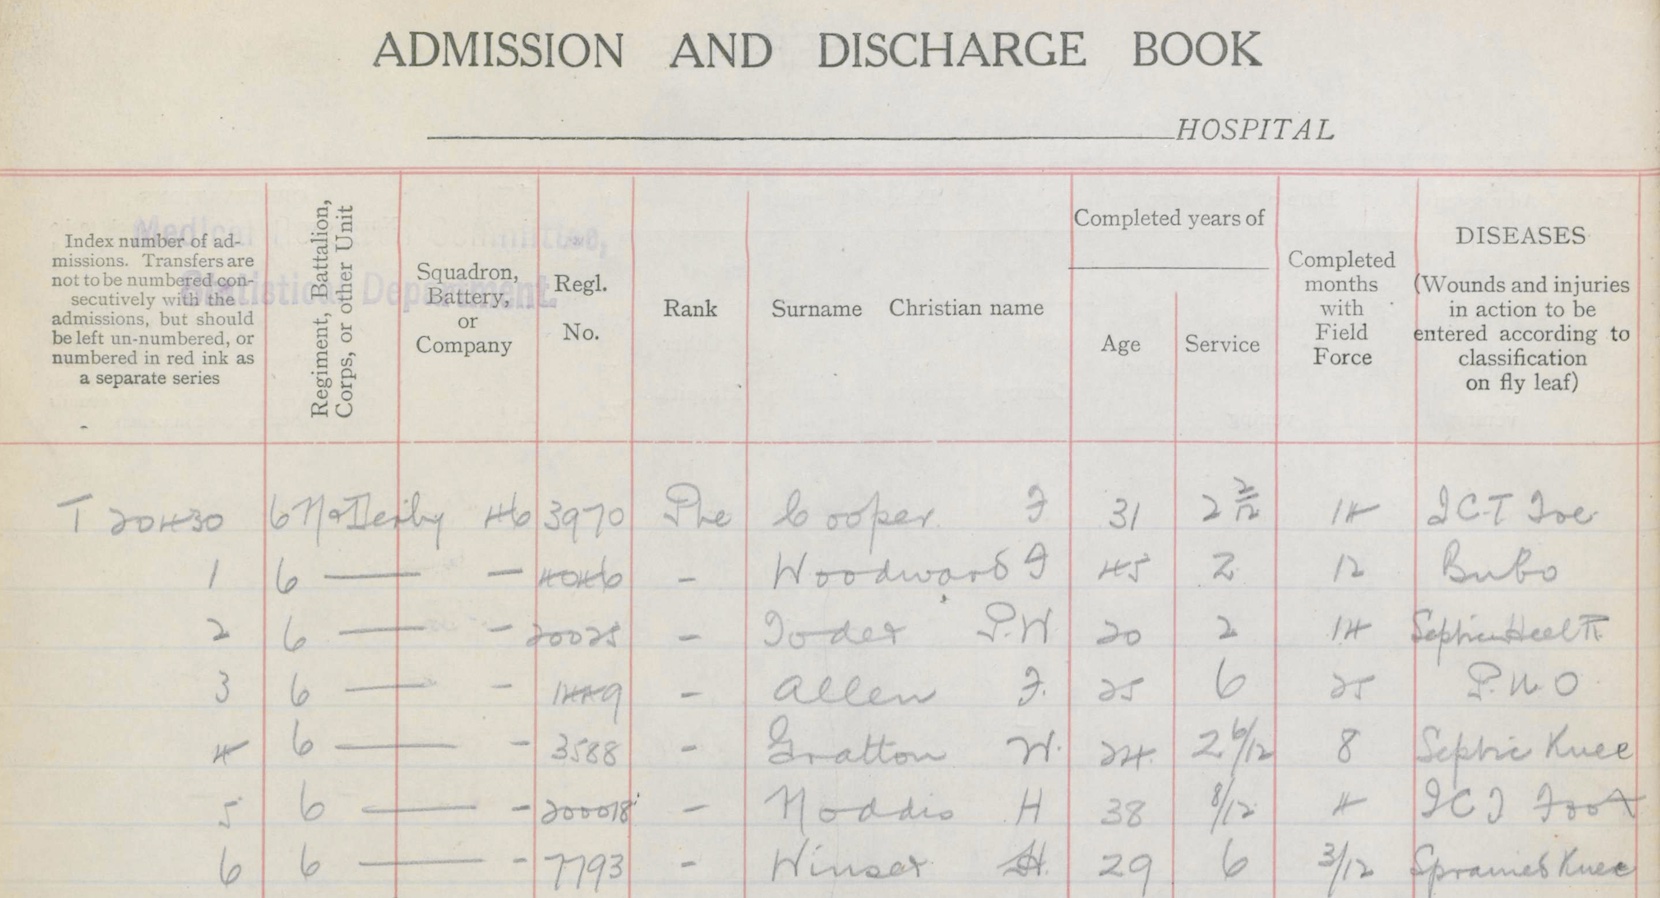 ADMISSION AND DISCHARGE BOOK
HOSPITAL
Index number of ad-
missions. Transfers are
not to be numbered con-
secutively with the
admissions, but should
be left un-numbered, or
numbered in red ink as
a separate series
Regiment, Battalion,
Corps, or other Unit
Squadron,
Battery,
or
Company
Regl.
No.
Rank
Surname Christian name
Completed years of
Age
Service
Completed
months
with
Field
Force
DISEASES
(Wounds and injuries
in action to be
entered according to
classification
on fly leaf)
Medical Committee,
Statistical Department.
T 20430 6 Derby 46 3970 Pte Cooper F 31 2 2/12 14 ICT Toe
1 6 — - 4046 - Woodward F 45 2 12 Bubo
2 6 — - 20025 - P.W 20 2 14 Septic Heel
3 6 — - 1449 - Allen F. 25 6 25 P.U.O
4 6 — - 3588 - Gratton W. 24 2 6/12 8 Septic Knee
5 6 — - 200018 - Noddis H 38 8/12 4 ICT Foot
6 6 — - 7793 - Winser H. 29 6 3/12 Sprained Knee